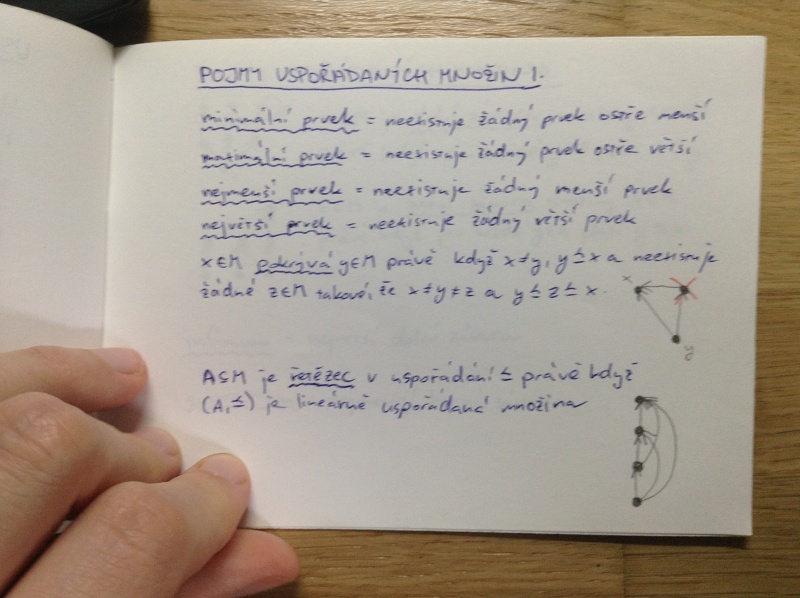 POJMY USPOŘÁDANÝCH MNOŽIN 1.
minimální prvek = neexistuje žádný prvek ostře menší
maximální prvek = neexistuje žádný prvek ostře větší
nejmenší prvek = neexistuje žádný menší prvek
největší prvek = neexistuje žádný větší prvek
x∈M pokrývá y∈M právě když x≠y, y≤x a neexistuje
žádné z∈M takové, že x≠y≠z a y≤z≤x.
x
y
A⊆M je řetězec v uspořádání ≤ právě když
(A,≤) je lineárně uspořádaná množina